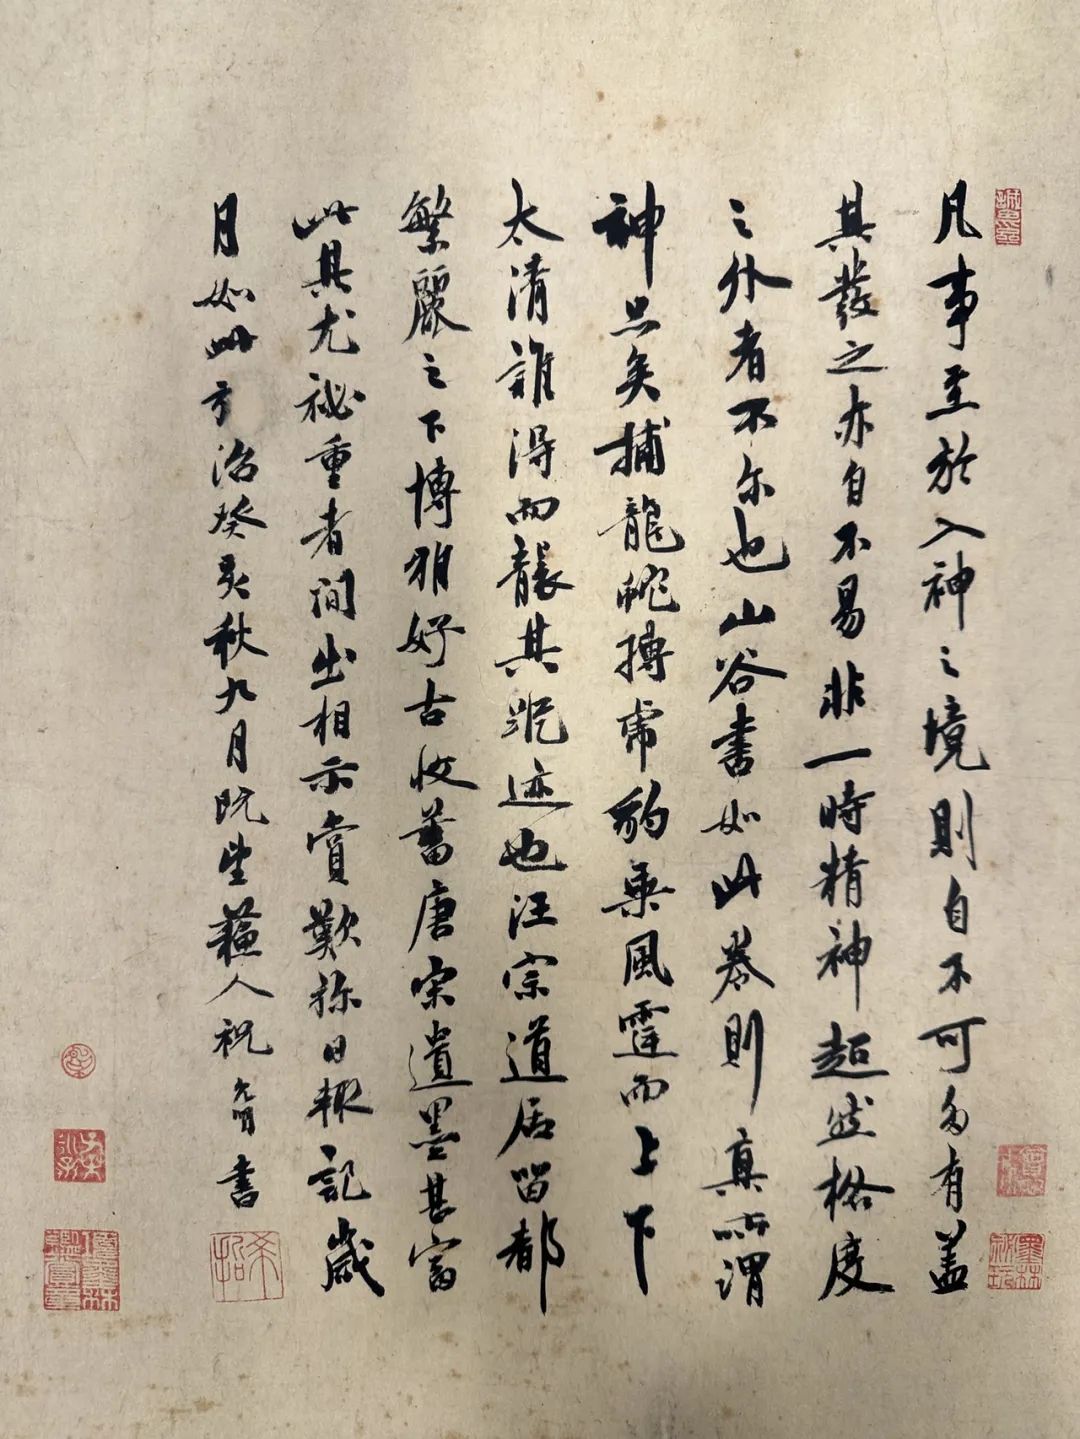 凡事至於入神之境則自不可多有蓋
其發之亦自不易非一時精神超然格度
之外者不尔也山谷書如此卷則真所謂
神品矣捕龍蛇搏虎豹乘風霆而上下
太清誰得而襲其跪迹也汪宗道居留都
繁麗之下博雅好古收蓄唐宋遺墨甚富
此其尤祕重者間出相示賞歎弥日輙記歲
月如此弘治癸亥秋九月既望蘇人祝允明書
希哲